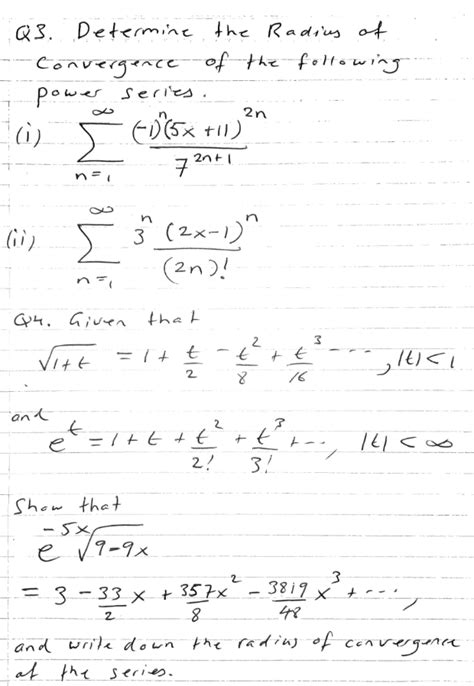 Q3. Determine the Radius of
Convergence of the following
power series.
(i) ∑_{n=1}^{∞} (-1)^n (5x+11)^{2n} / 7^{2n+1}
(ii) ∑_{n=1}^{∞} 3^n (2x-1)^n / (2n)!
Q4. Given that
√(1+t) = 1 + t/2 - t^2/8 + t^3/16 ---- , |t|<1
and
e^t = 1 + t + t^2/2! + t^3/3! + ---, |t| < ∞
Show that
e^{-5x} √(9-9x)
= 3 - 33/2 x + 357x^2/8 - 3819/48 x^3 + ---,
and write down the radius of convergence
of the series.